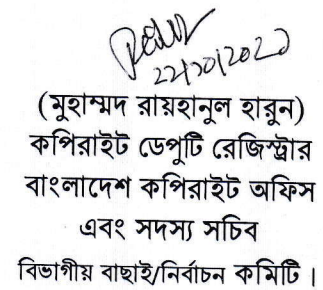 ২২/১০/২০২০
(মুহাম্মদ রায়হানুল হারুন)
কপিরাইট ডেপুটি রেজিস্ট্রার
বাংলাদেশ কপিরাইট অফিস
এবং সদস্য সচিব
বিভাগীয় বাছাই/নির্বাচন কমিটি।